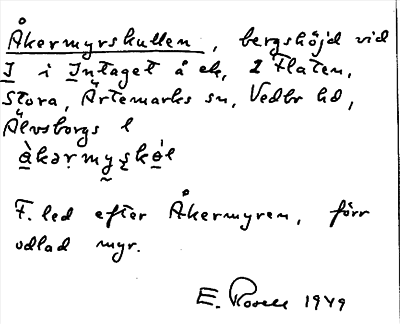 Åkermyrskullen, bergshöjd vid
I i Intaget å ek, 2 Flaten,
Stora, Ärtemarks sn, Vedbo hd,
Älvsborgs l
F. led efter Åkermyren, förr
odlad myr.
E. Rosell 1949